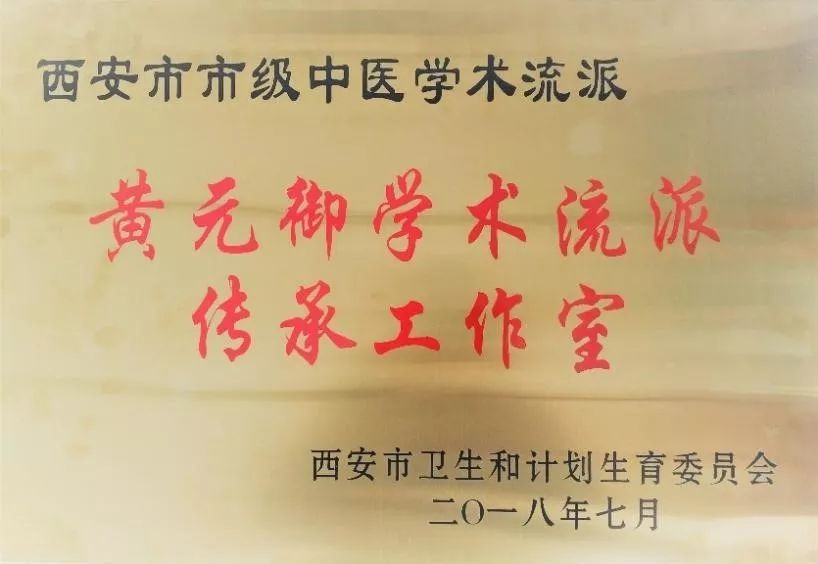 西安市市级中医学术流派
黄元御学术流派
传承工作室
西安市卫生和计划生育委员会
二〇一八年七月